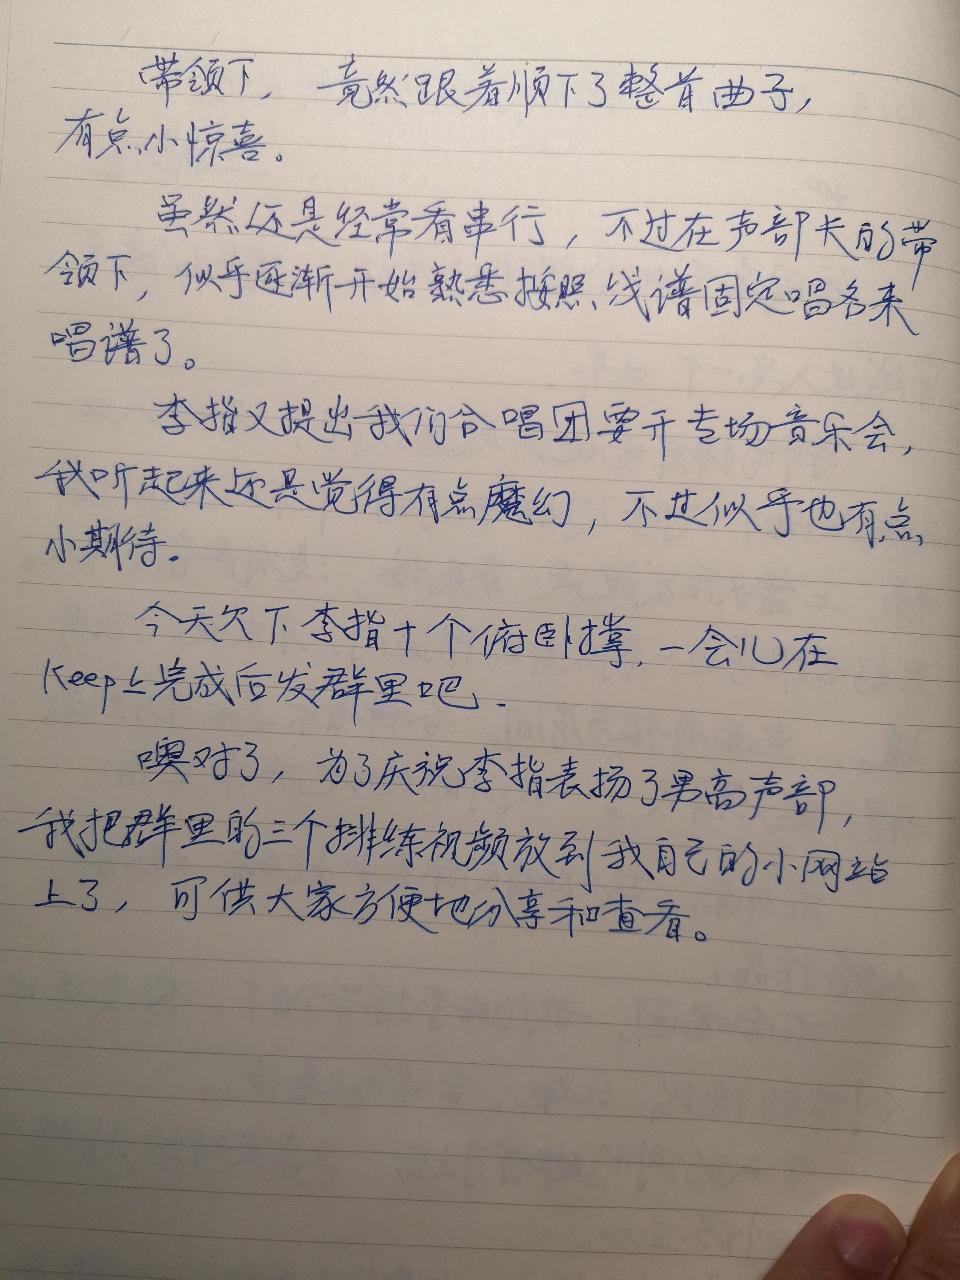 带领下，竟然跟着顺下了整首曲子，
有点小惊喜。
虽然还是经常看串行，不过在声部长的带
领下，似乎逐渐开始熟悉按照线谱固定唱名来
唱谱了。
李指又提出我们合唱团要开专场音乐会，
我听起来还是觉得有点魔幻，不过似乎也有点
小期待。
今天欠下李指十个俯卧撑，一会儿在
Keep上完成后发群里吧.
噢对了，为了庆祝李指表扬了男高声部，
我把群里的三个排练视频放到我自己的小网站
上了，可供大家方便地分享和查看。